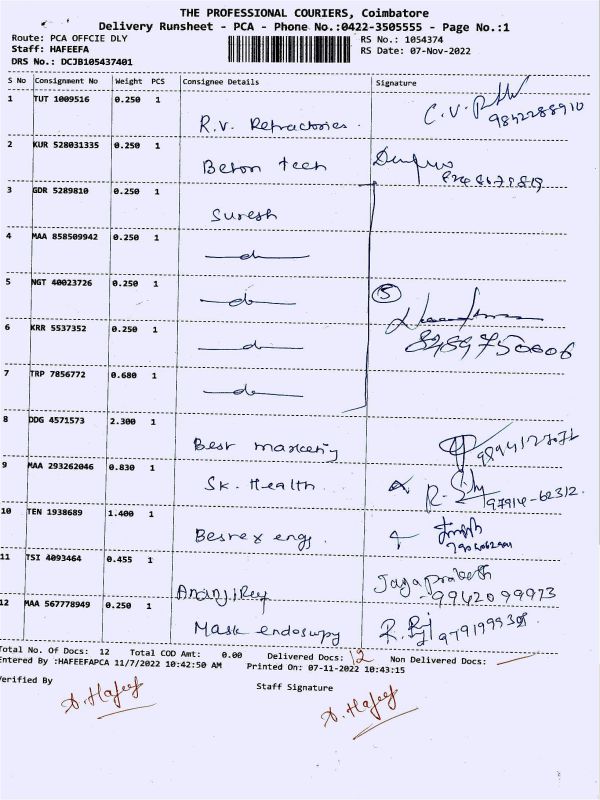 THE PROFESSIONAL COURIERS, Coimbatore
Delivery Runsheet - PCA - Phone No.:0422-3505555 - Page No.:1
Route: PCA OFFCIE DLY
RS No.: 1054374
Staff: HAFEEFA
RS Date: 07-Nov-2022
DRS No.: DCJB105437401
S No Consignment No Weight PCS Consignee Details Signature
1 TUT 1009516 0.250 1
R.V. Refractories. C.V. 9842288910
2 KUR 528031335 0.250 1
Beton tech
3 GDR 5289810 0.250 1
Suresh
4 MAA 858509942 0.250 1
do
5 NGT 40023726 0.250 1
do 5
6 KRR 5537352 0.250 1
do 8489750006
7 TRP 7856772 0.680 1
do
8 DDG 4571573 2.300 1
Best marketing
9 MAA 293262046 0.830 1
Sk. Health R. 97914-62312.
10 TEN 1938689 1.400 1
Besrex engg.
11 TSI 4093464 0.455 1
Jaya prakash
-9942099973
12 MAA 567778949 0.250 1
Mask endosupy R.
Total No. Of Docs: 12 Total COD Amt: 0.00 Delivered Docs: 12 Non Delivered Docs:
Entered By :HAFEEFAPCA 11/7/2022 10:42:50 AM Printed On: 07-11-2022 10:43:15
Verified By Staff Signature
A. Hafeef A. Hafeef